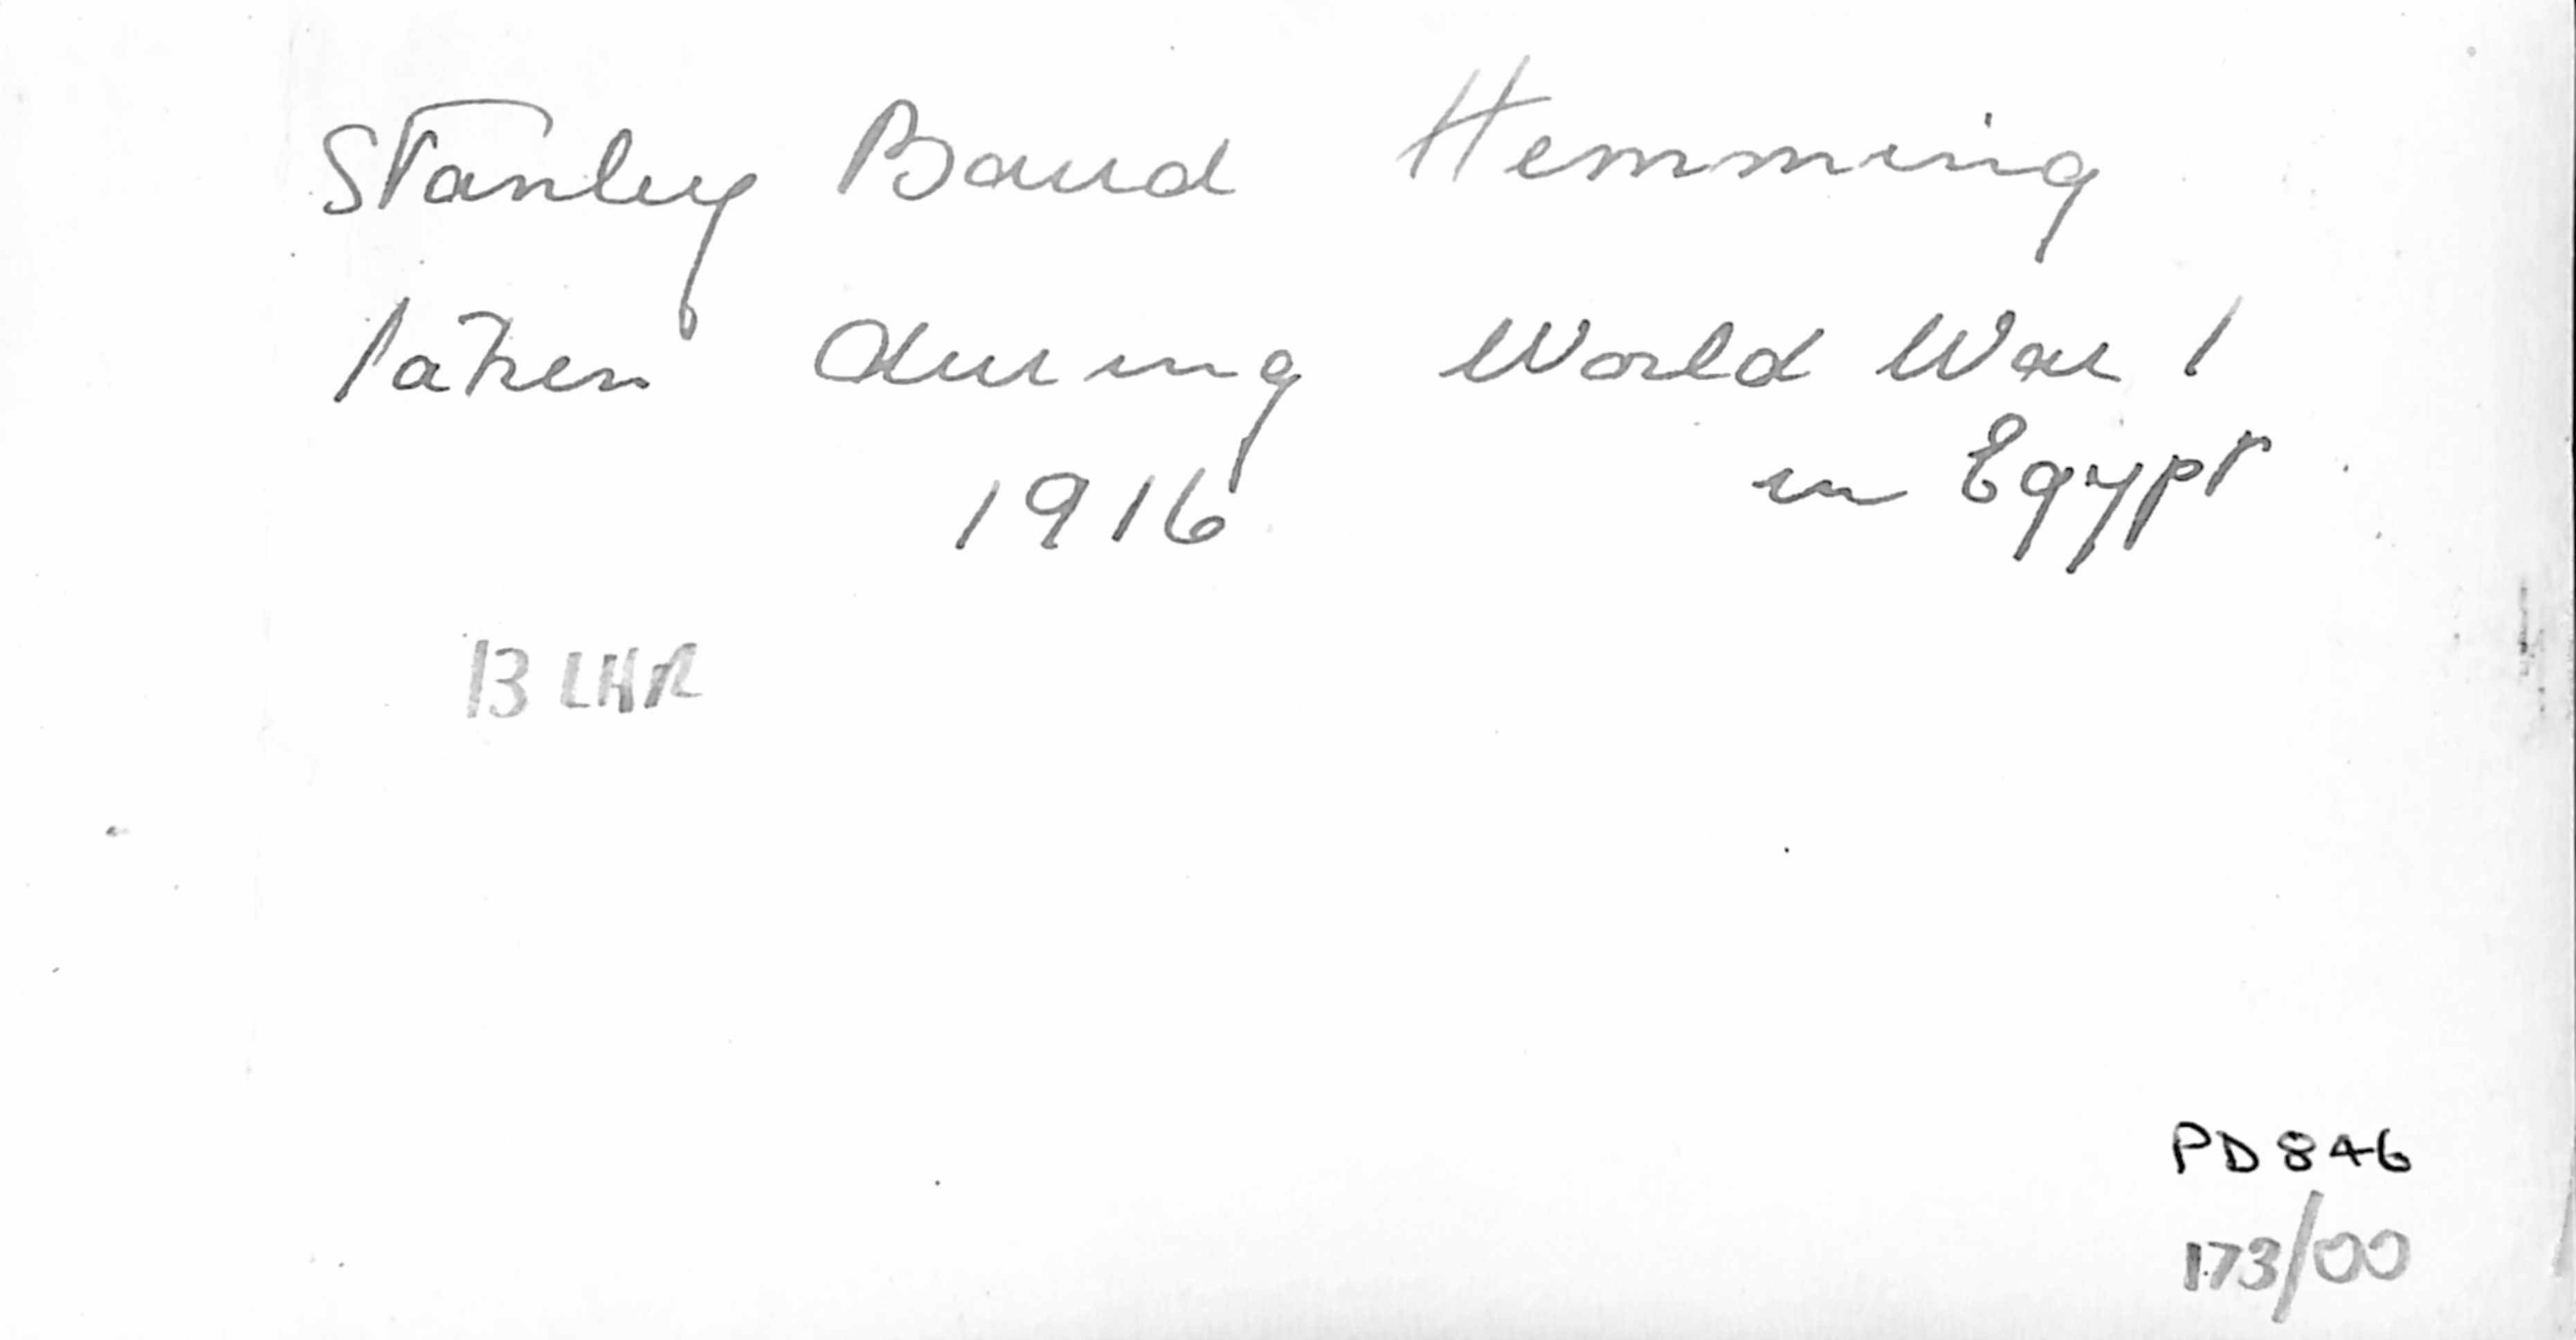 Stanley Baird Hemming
taken during World War 1
1916 in Egypt
13 LHR
PD846
173/00